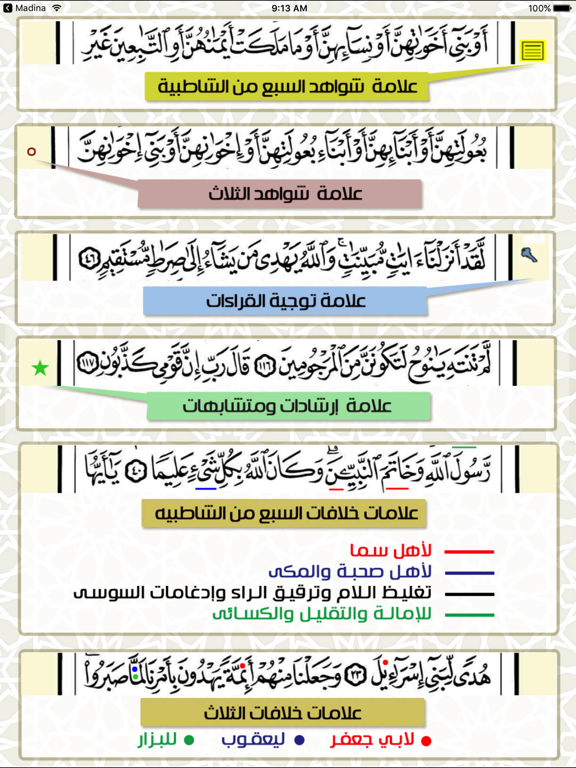 Madina 9:13 AM 100%
أَوْ بَنِىٓ أَخَوَٰتِهِنَّ أَوْ نِسَآئِهِنَّ أَوْ مَا مَلَكَتْ أَيْمَٰنُهُنَّ أَوِ ٱلتَّٰبِعِينَ غَيْرِ
علامة شواهد السبع من الشاطبية
بُعُولَتِهِنَّ أَوْ أَبْنَآئِهِنَّ أَوْ أَبْنَآءِ بُعُولَتِهِنَّ أَوْ إِخْوَٰنِهِنَّ أَوْ بَنِىٓ إِخْوَٰنِهِنَّ
علامة شواهد الثلاث
لَّقَدْ أَنزَلْنَآ ءَايَٰتٍ مُّبَيِّنَٰتٍ ۚ وَٱللَّهُ يَهْدِى مَن يَشَآءُ إِلَىٰ صِرَٰطٍ مُّسْتَقِيمٍ ٤٦
علامة توجية القراءات
لَّمْ تَنتَهِ يَٰنُوحُ لَتَكُونَنَّ مِنَ ٱلْمَرْجُومِينَ ١١٦ قَالَ رَبِّ إِنَّ قَوْمِى كَذَّبُونِ ١١٧
علامة إرشادات ومتشابهات
رَّسُولَ ٱللَّهِ وَخَاتَمَ ٱلنَّبِيِّـۧنَ ۗ وَكَانَ ٱللَّهُ بِكُلِّ شَىْءٍ عَلِيمًا ٤٠ يَٰٓأَيُّهَا
علامات خلافات السبع من الشاطبيه
لأهل سما
لأهل صحبة والمكى
تغليظ اللام وترقيق الراء وإدغامات السوسى
للإمالة والتقليل والكسائى
هُدًى لِّبَنِىٓ إِسْرَٰٓءِيلَ ٢٣ وَجَعَلْنَا مِنْهُمْ أَئِمَّةً يَهْدُونَ بِأَمْرِنَا لَمَّا صَبَرُوا۟
علامات خلافات الثلاث
لابي جعفر ليعقوب للبزار